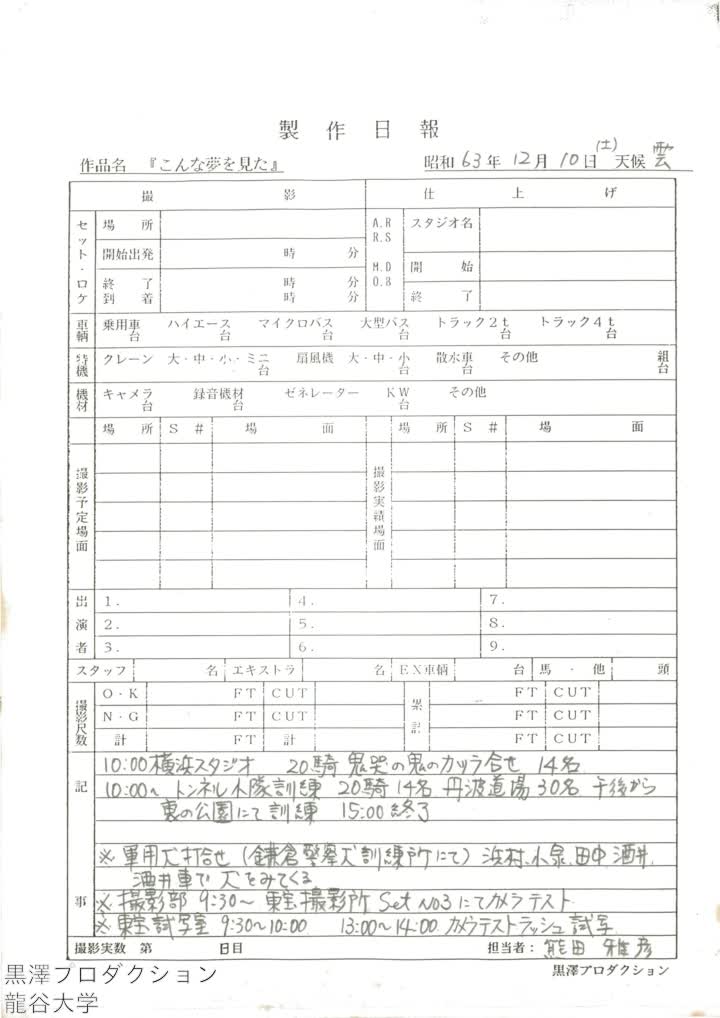 製作日報
作品名 『こんな夢を見た』 昭和63年12月10日(土) 天候 雲
撮影 仕上げ
セット・ロケ 場所 A.R R.S スタジオ名
開始出発 時 分 M.D O.B 開始
終了 時 分
到着 時 分 終了
車輌 乗用車 台 ハイエース 台 マイクロバス 台 大型バス 台 トラック2t 台 トラック4t 台
特機 クレーン 大・中・小・ミニ 台 扇風機 大・中・小 台 散水車 台 その他 組 台
機材 キャメラ 台 録音機材 台 ゼネレーター KW 台 その他
場所 S# 場面 場所 S# 場面
撮影予定場面 撮影実績場面
出演者 1. 4. 7.
2. 5. 8.
3. 6. 9.
スタッフ 名 エキストラ 名 EX車輌 台 馬・他 頭
撮影尺数 O・K FT CUT 累計 FT CUT
N・G FT CUT FT CUT
計 FT 計 FT CUT
記事
10:00 横浜スタジオ 20騎 鬼哭の鬼のカツラ合せ 14名
10:00〜 トンネル小隊訓練 20騎 14名 丹波道場 30名 午後から
裏の公園にて訓練 15:00終了
※ 軍用犬打合せ (鎌倉警察犬訓練所にて) 浜村、小泉、田中 酒井、
酒井車で犬をみてくる
※ 撮影部 9:30〜 東宝撮影所 Set No3にてカメラテスト
※ 東宝試写室 9:30〜10:00 13:00〜14:00 カメラテストラッシュ試写
撮影実数 第 日目 担当者: 熊田雅彦
黒澤プロダクション
黒澤プロダクション
龍谷大学